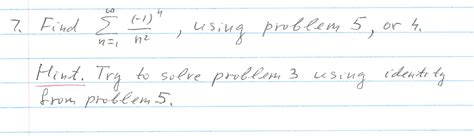 7. Find ∑_{n=1}^{∞} (-1)^n / n², using problem 5, or 4.
Hint. Try to solve problem 3 using identity
from problem 5.